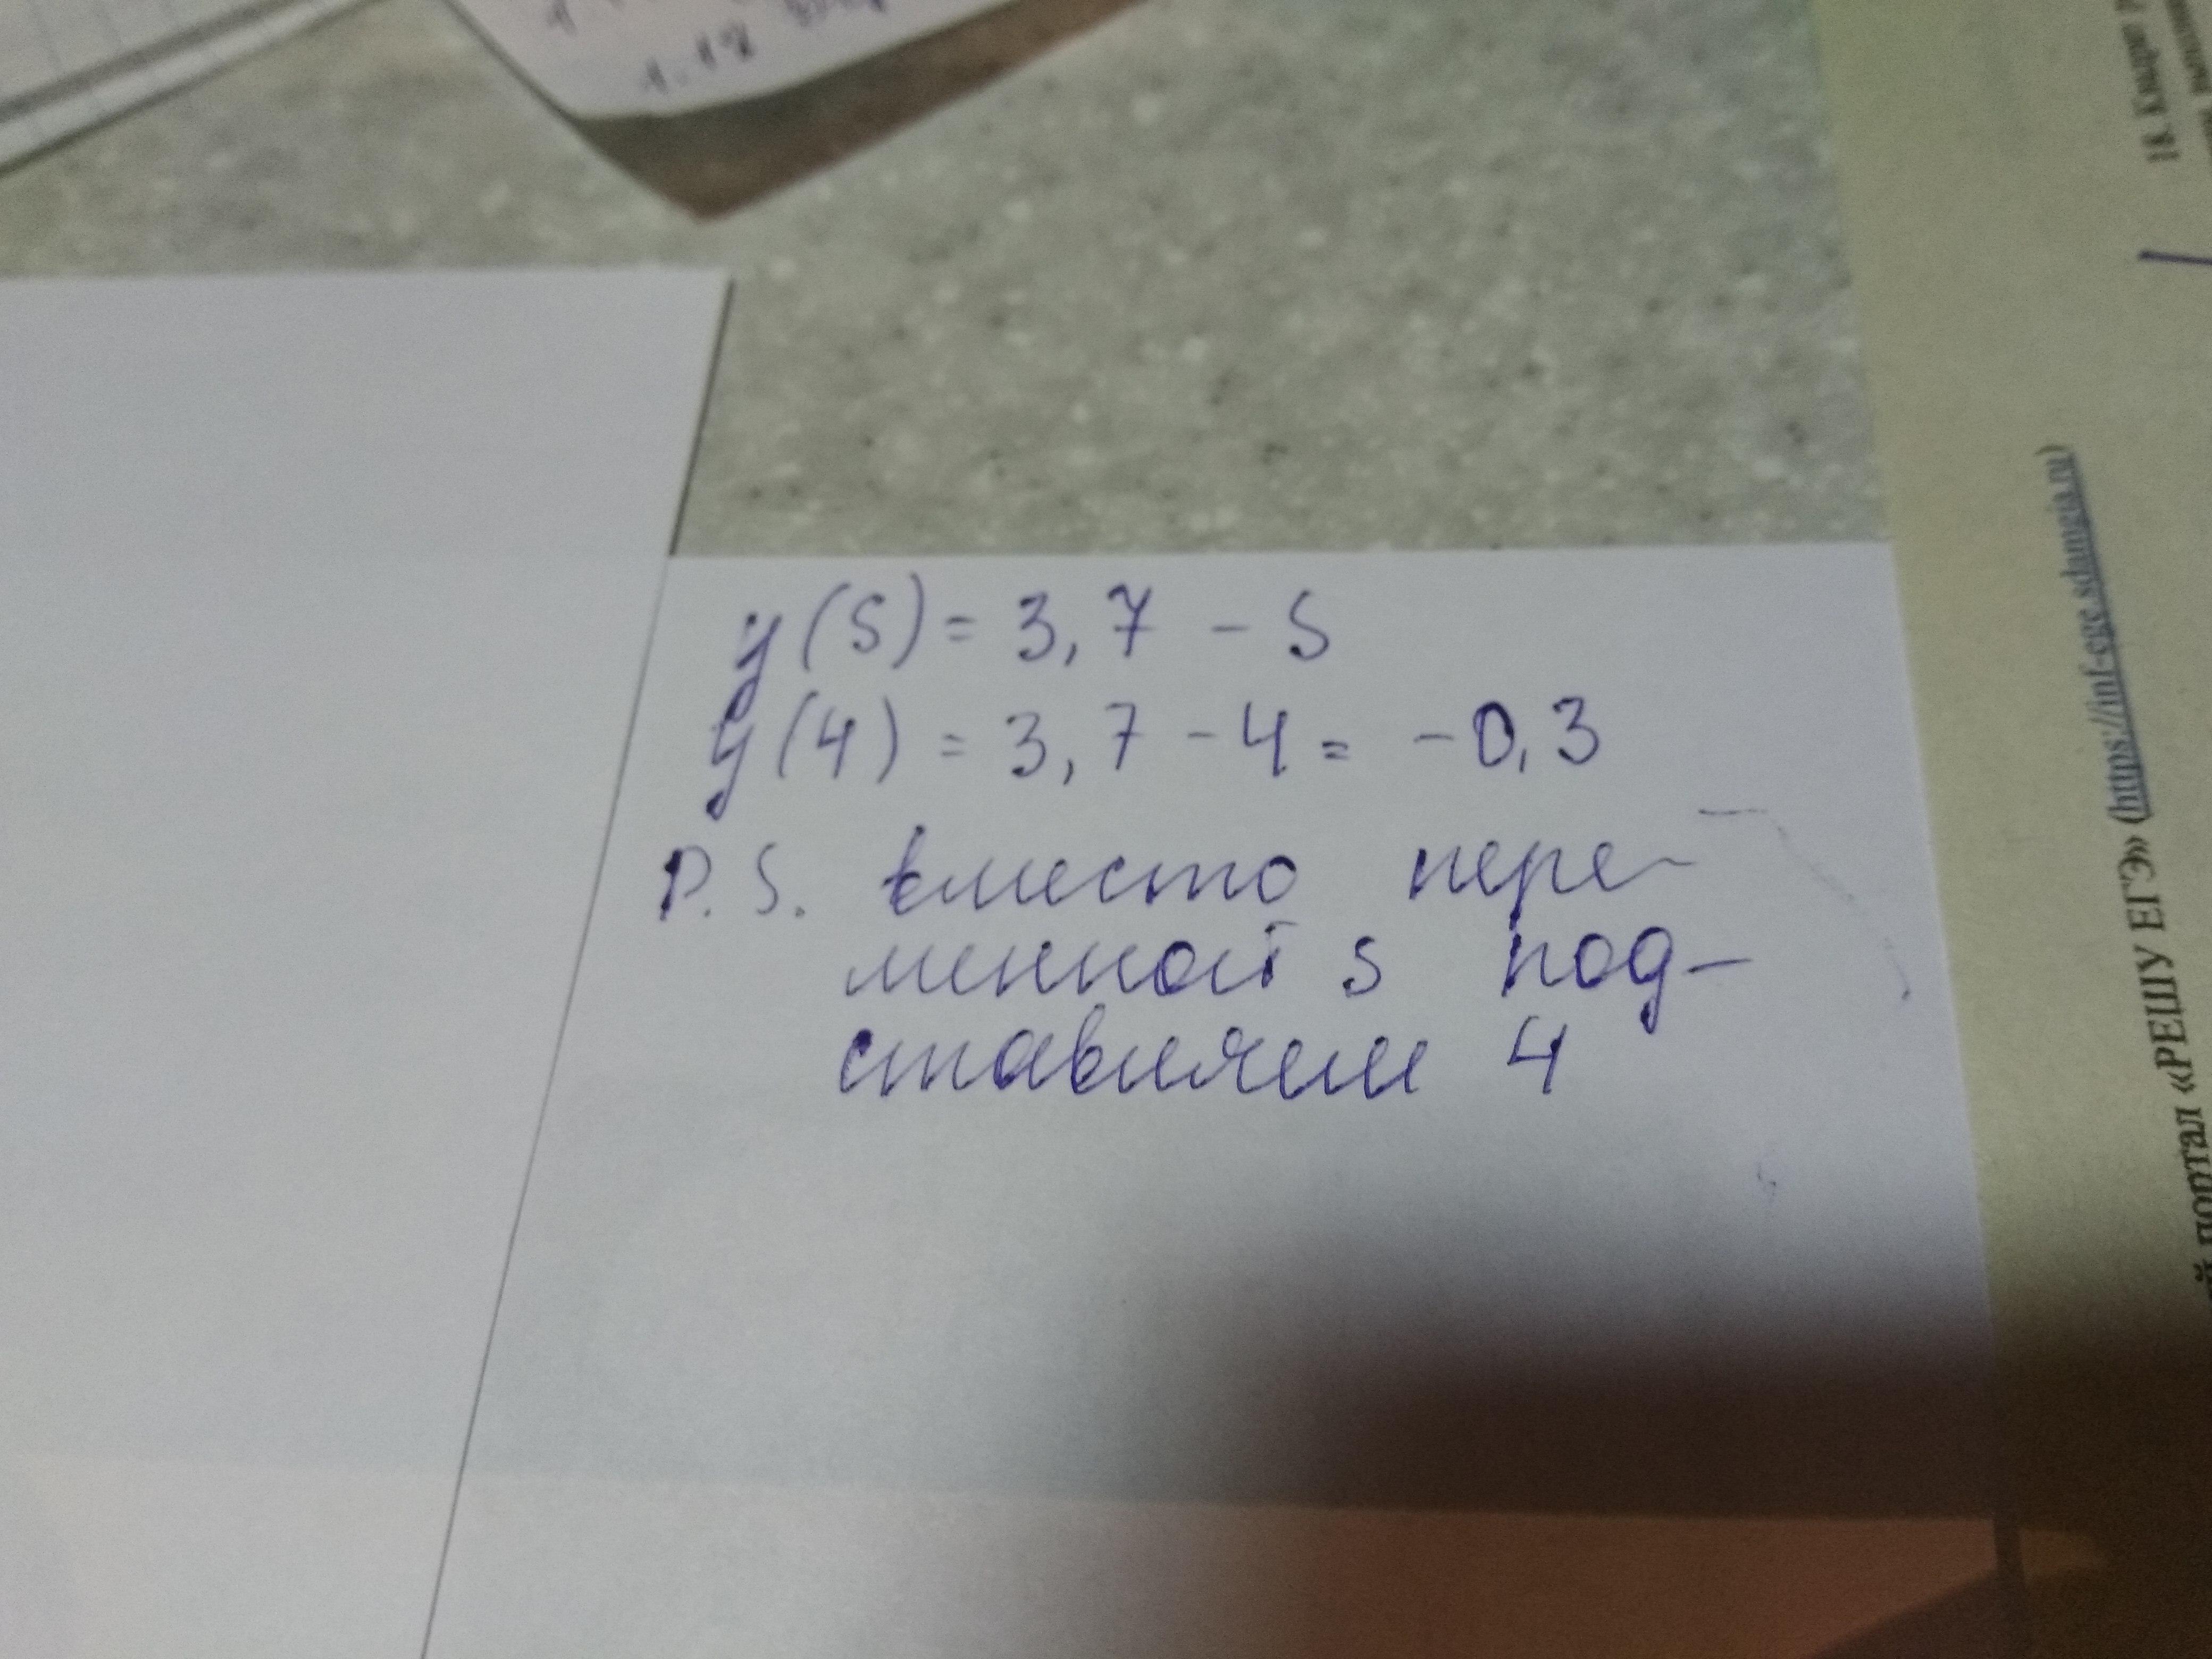 y(s) = 3,7 - s
y(4) = 3,7 - 4 = -0,3
P.S. вместо пере-
менной s под-
ставляем 4
18. Квадрат
й портал «РЕШУ ЕГЭ» (https://inf-ege.sdamgia.ru)